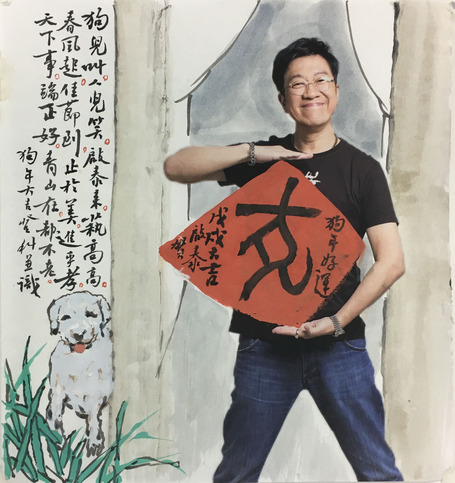 狗兒叫人兒笑啟泰来高高
春風起佳節到止於美進考
天下事端正好青山在都不老
狗年大吉登科並識
狗年好運
戊戌大吉
啟泰